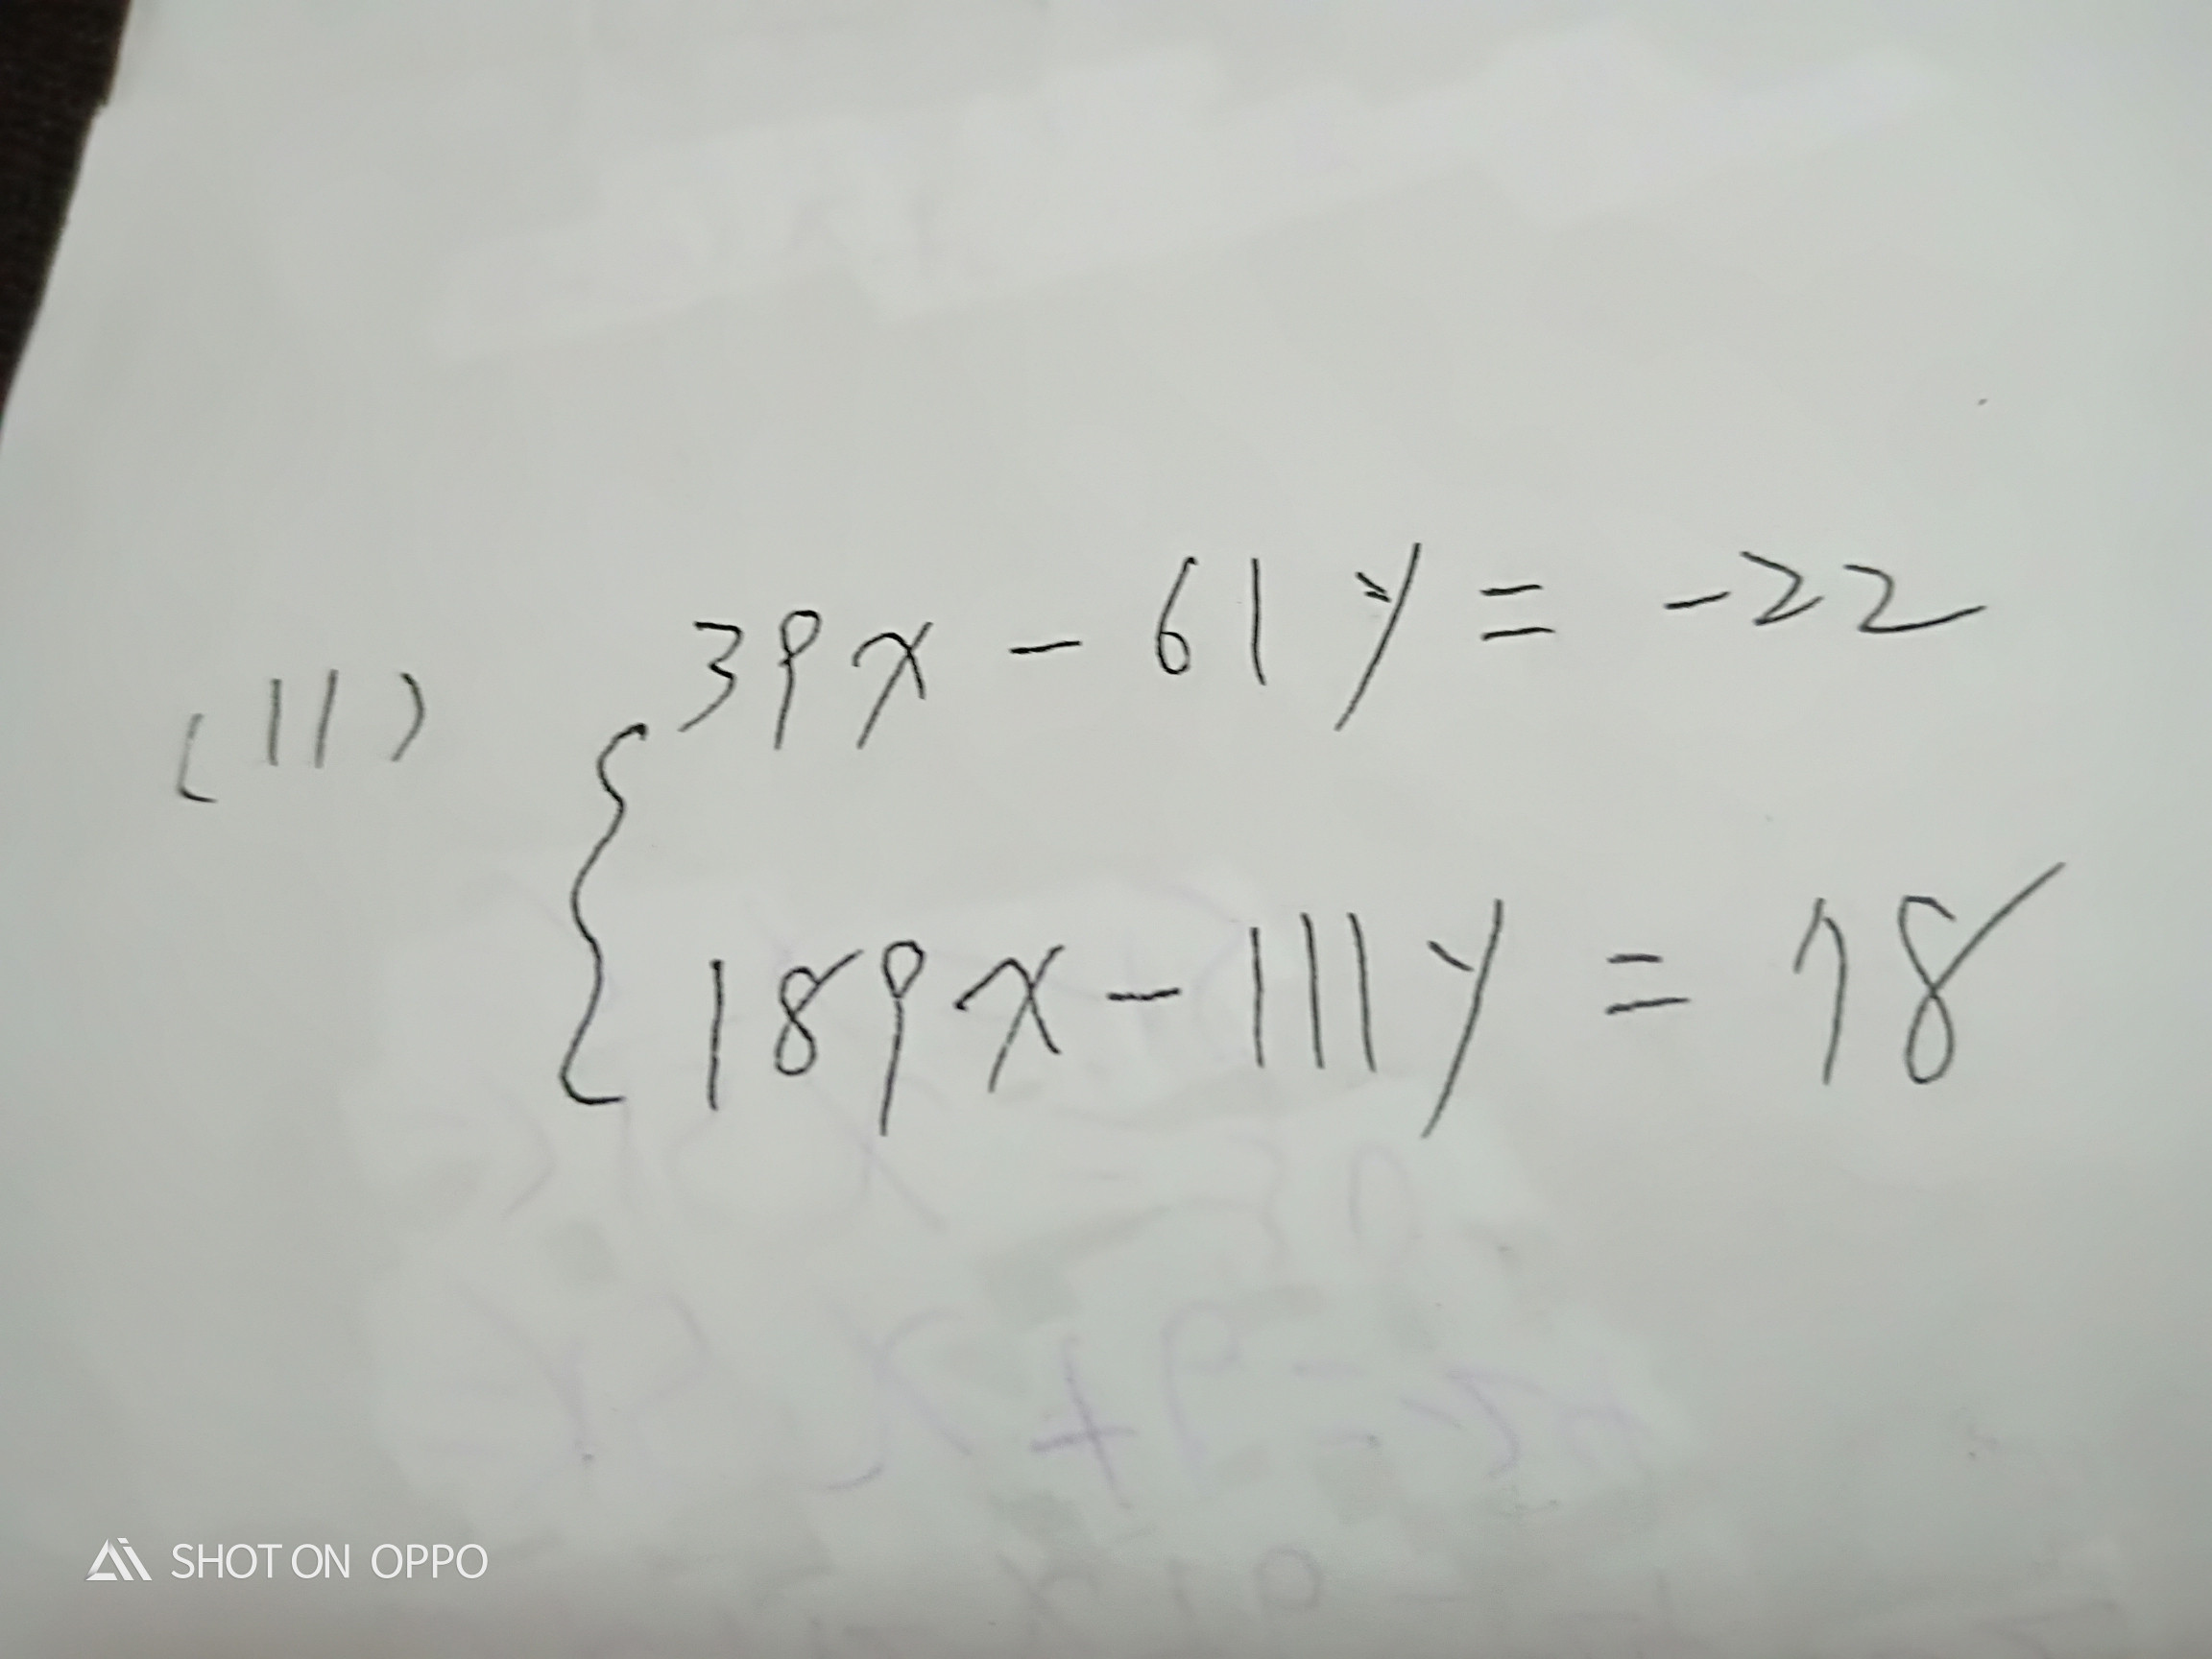 (11)
39x - 61y = -22
189x - 111y = 78
SHOT ON OPPO